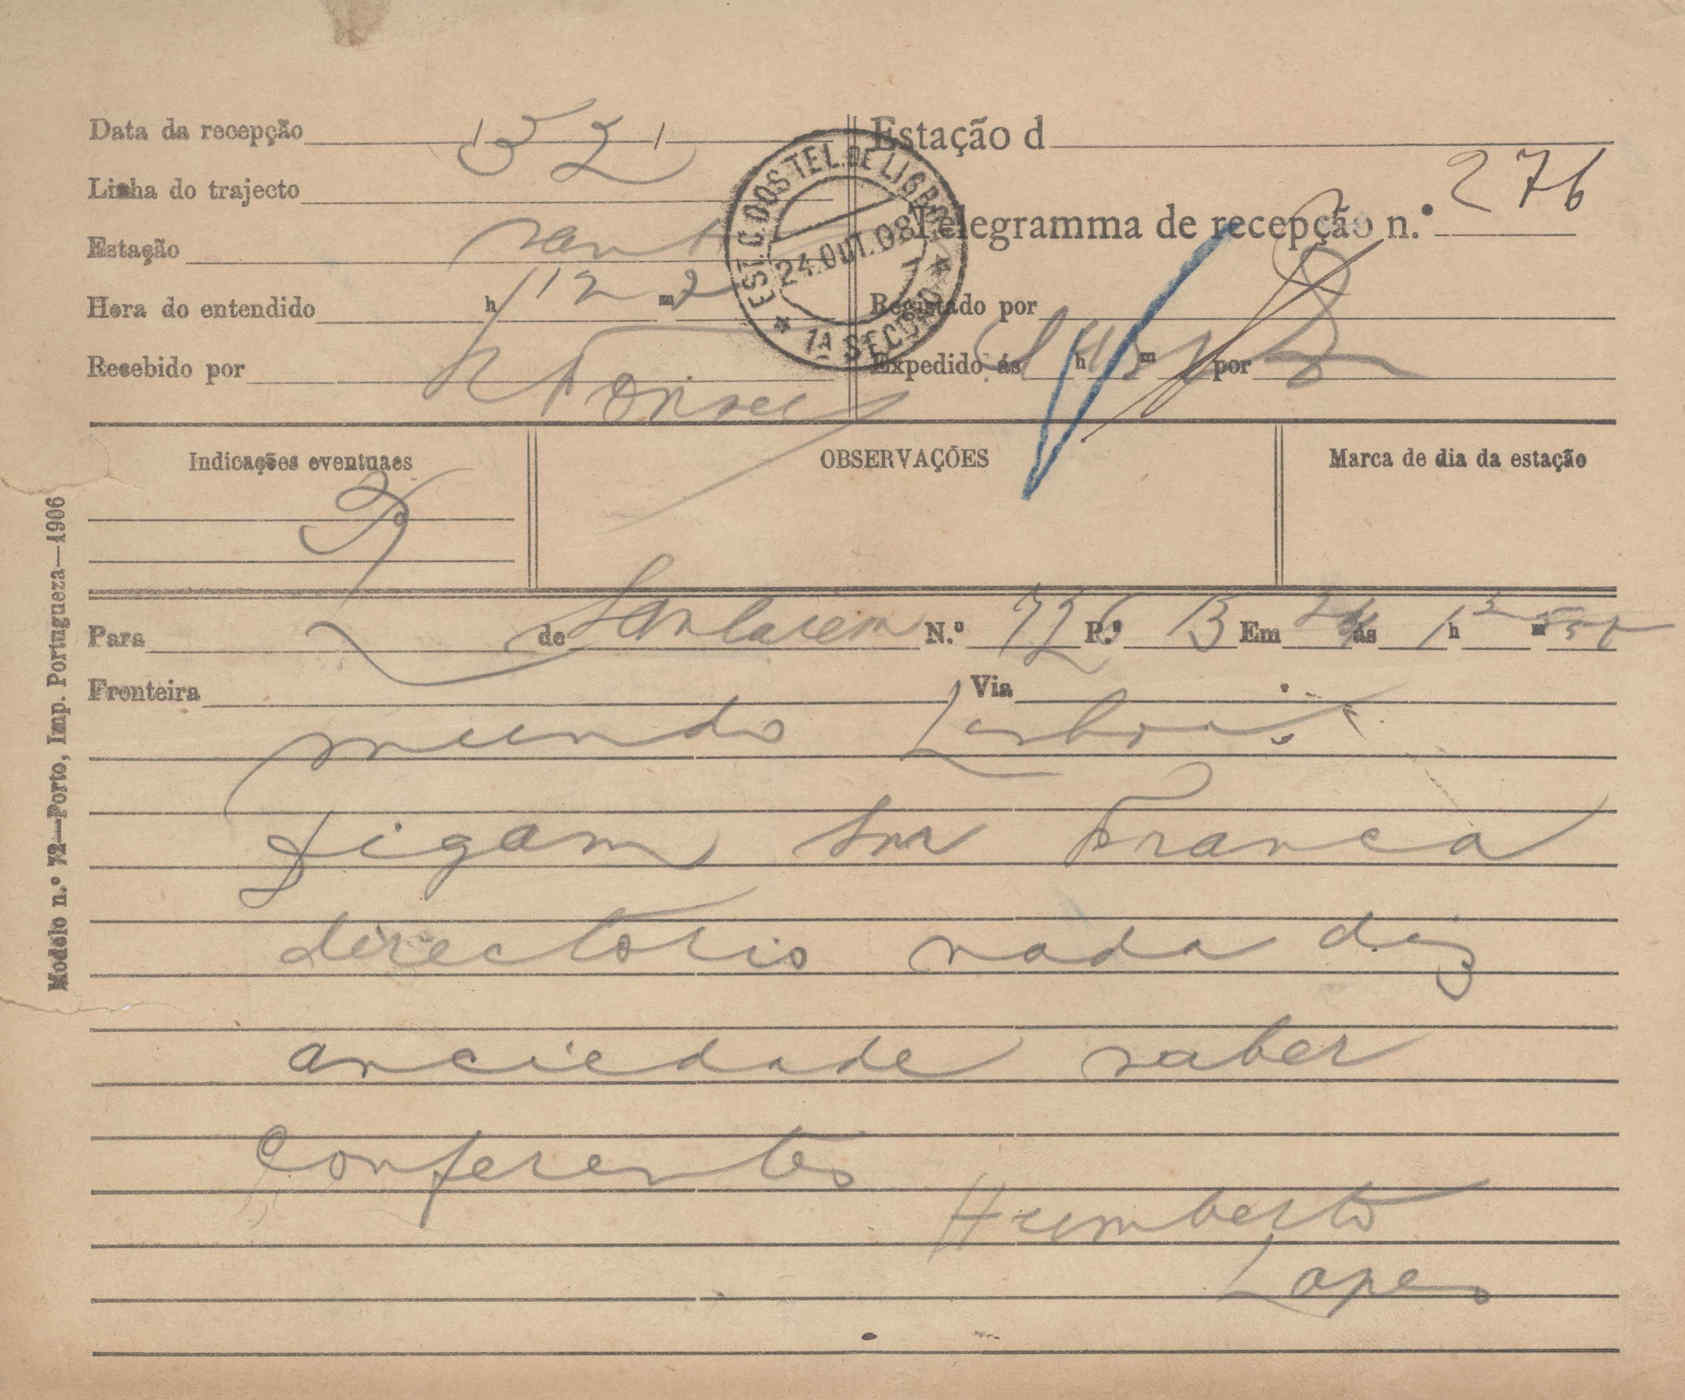 Data da recepção
Linha do trajecto
Estação sant
Hora do entendido h 12 m 2
Recebido por Fonseca
Estação d
Telegramma de recepção n.º 276
Registado por
Expedido ás h m por
EST. C. DOS TEL. DE LISBOA
24.OUT.08
1ª SECÇÃO
Indicações eventuaes
OBSERVAÇÕES
Marca de dia da estação
Para de Santarem N.º 726 P.s 13 Em 24 ás 1 h m
Fronteira Via
mundo Lisboa
digam sm Franca
directorio nada diz
anciedade saber
conferentes
Humberto
Lopes
Modelo n.º 72—Porto, Imp. Portugueza—1906